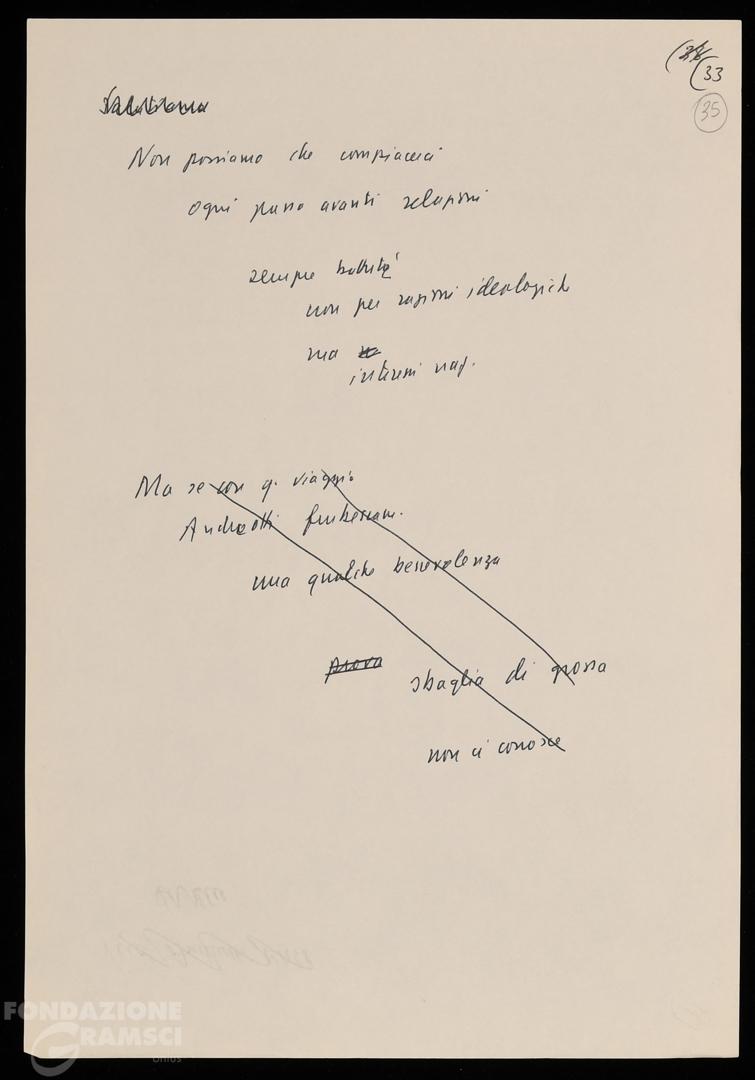 (33
35
Non possiamo che compiacerci
ogni passo avanti relazioni
sempre battuti
non per ragioni ideologiche
ma
interessi naz.
Ma se con q. viaggio
Andreotti
una qualche benevolenza
prova sbaglia di grossa
non ci conosce
FONDAZIONE
GRAMSCI
onlus